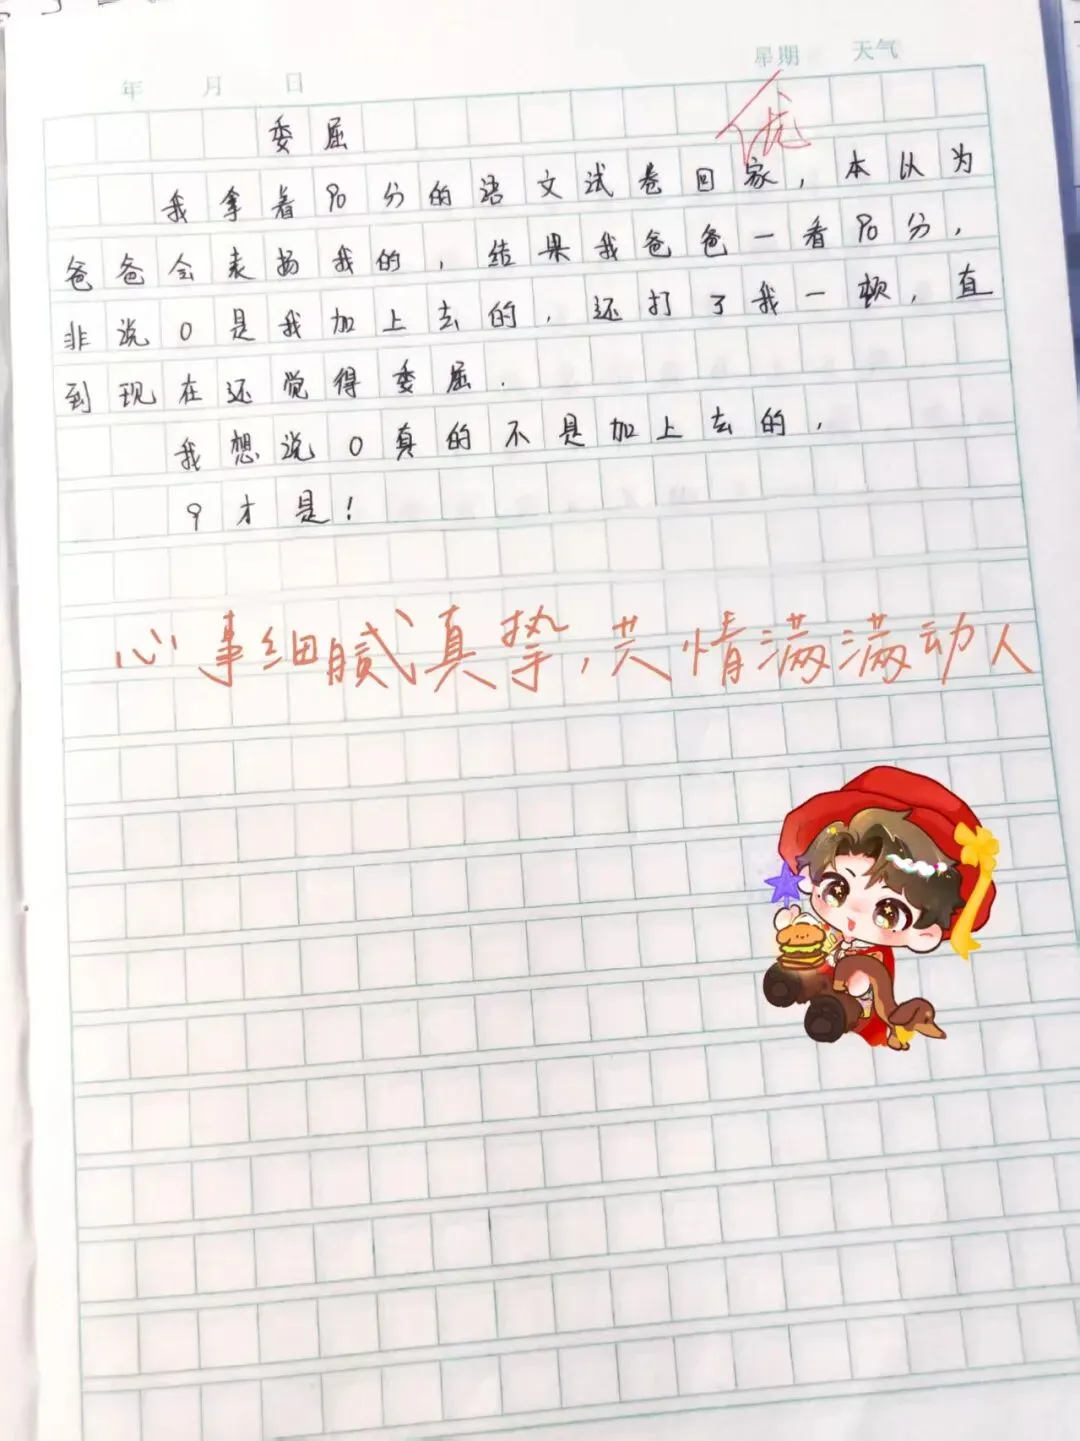 年 月 日 星期 天气
委屈
优
我拿着90分的语文试卷回家，本以为
爸爸会表扬我的，结果我爸爸一看90分，
非说0是我加上去的，还打了我一顿，直
到现在还觉得委屈.
我想说0真的不是加上去的，
9才是！
心事细腻真挚，共情满满动人